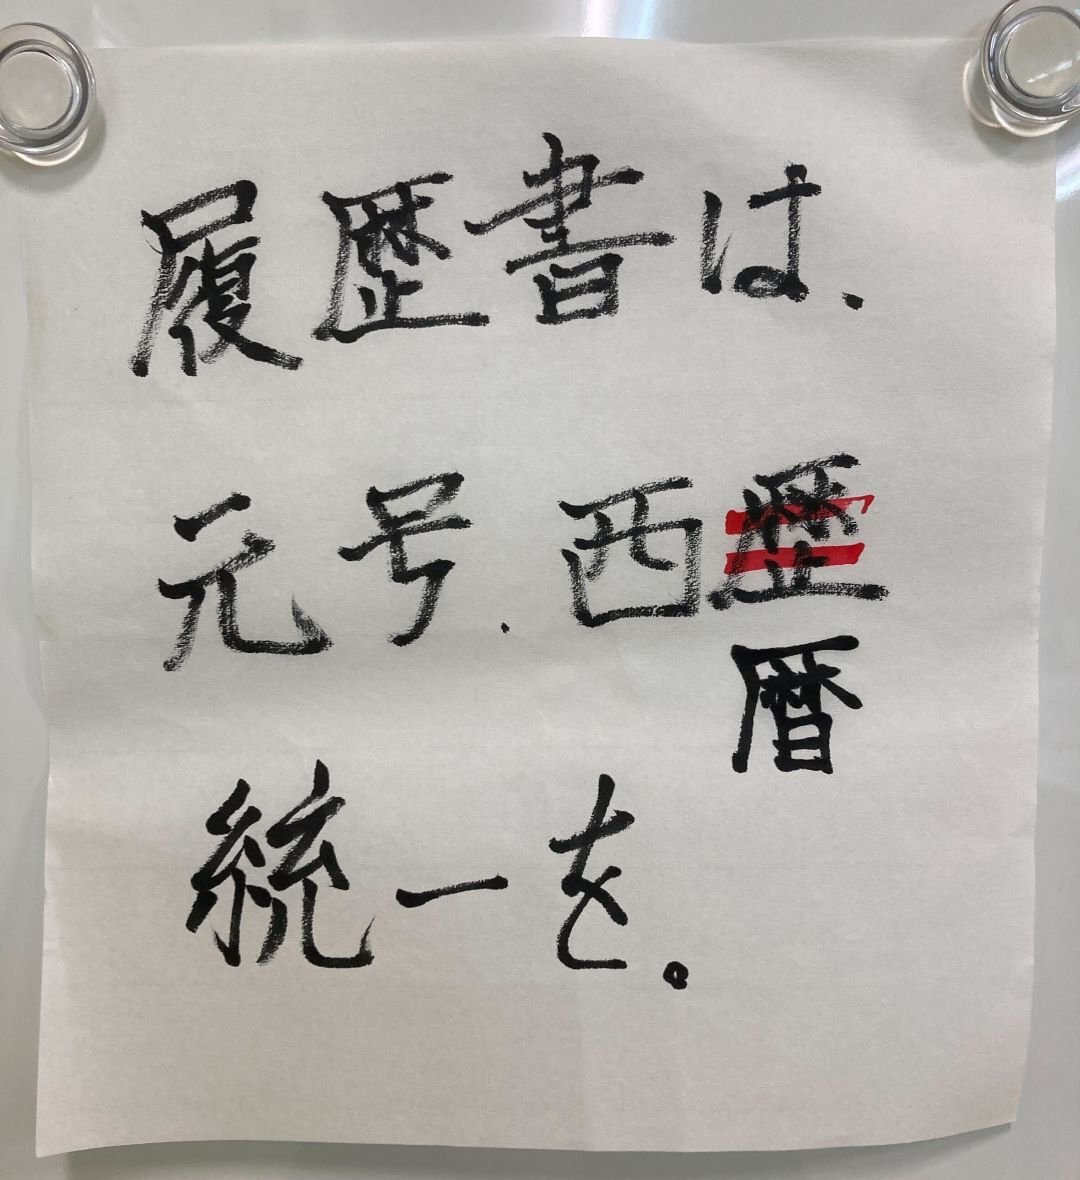 履歴書は、
元号、西歴
暦
統一を。